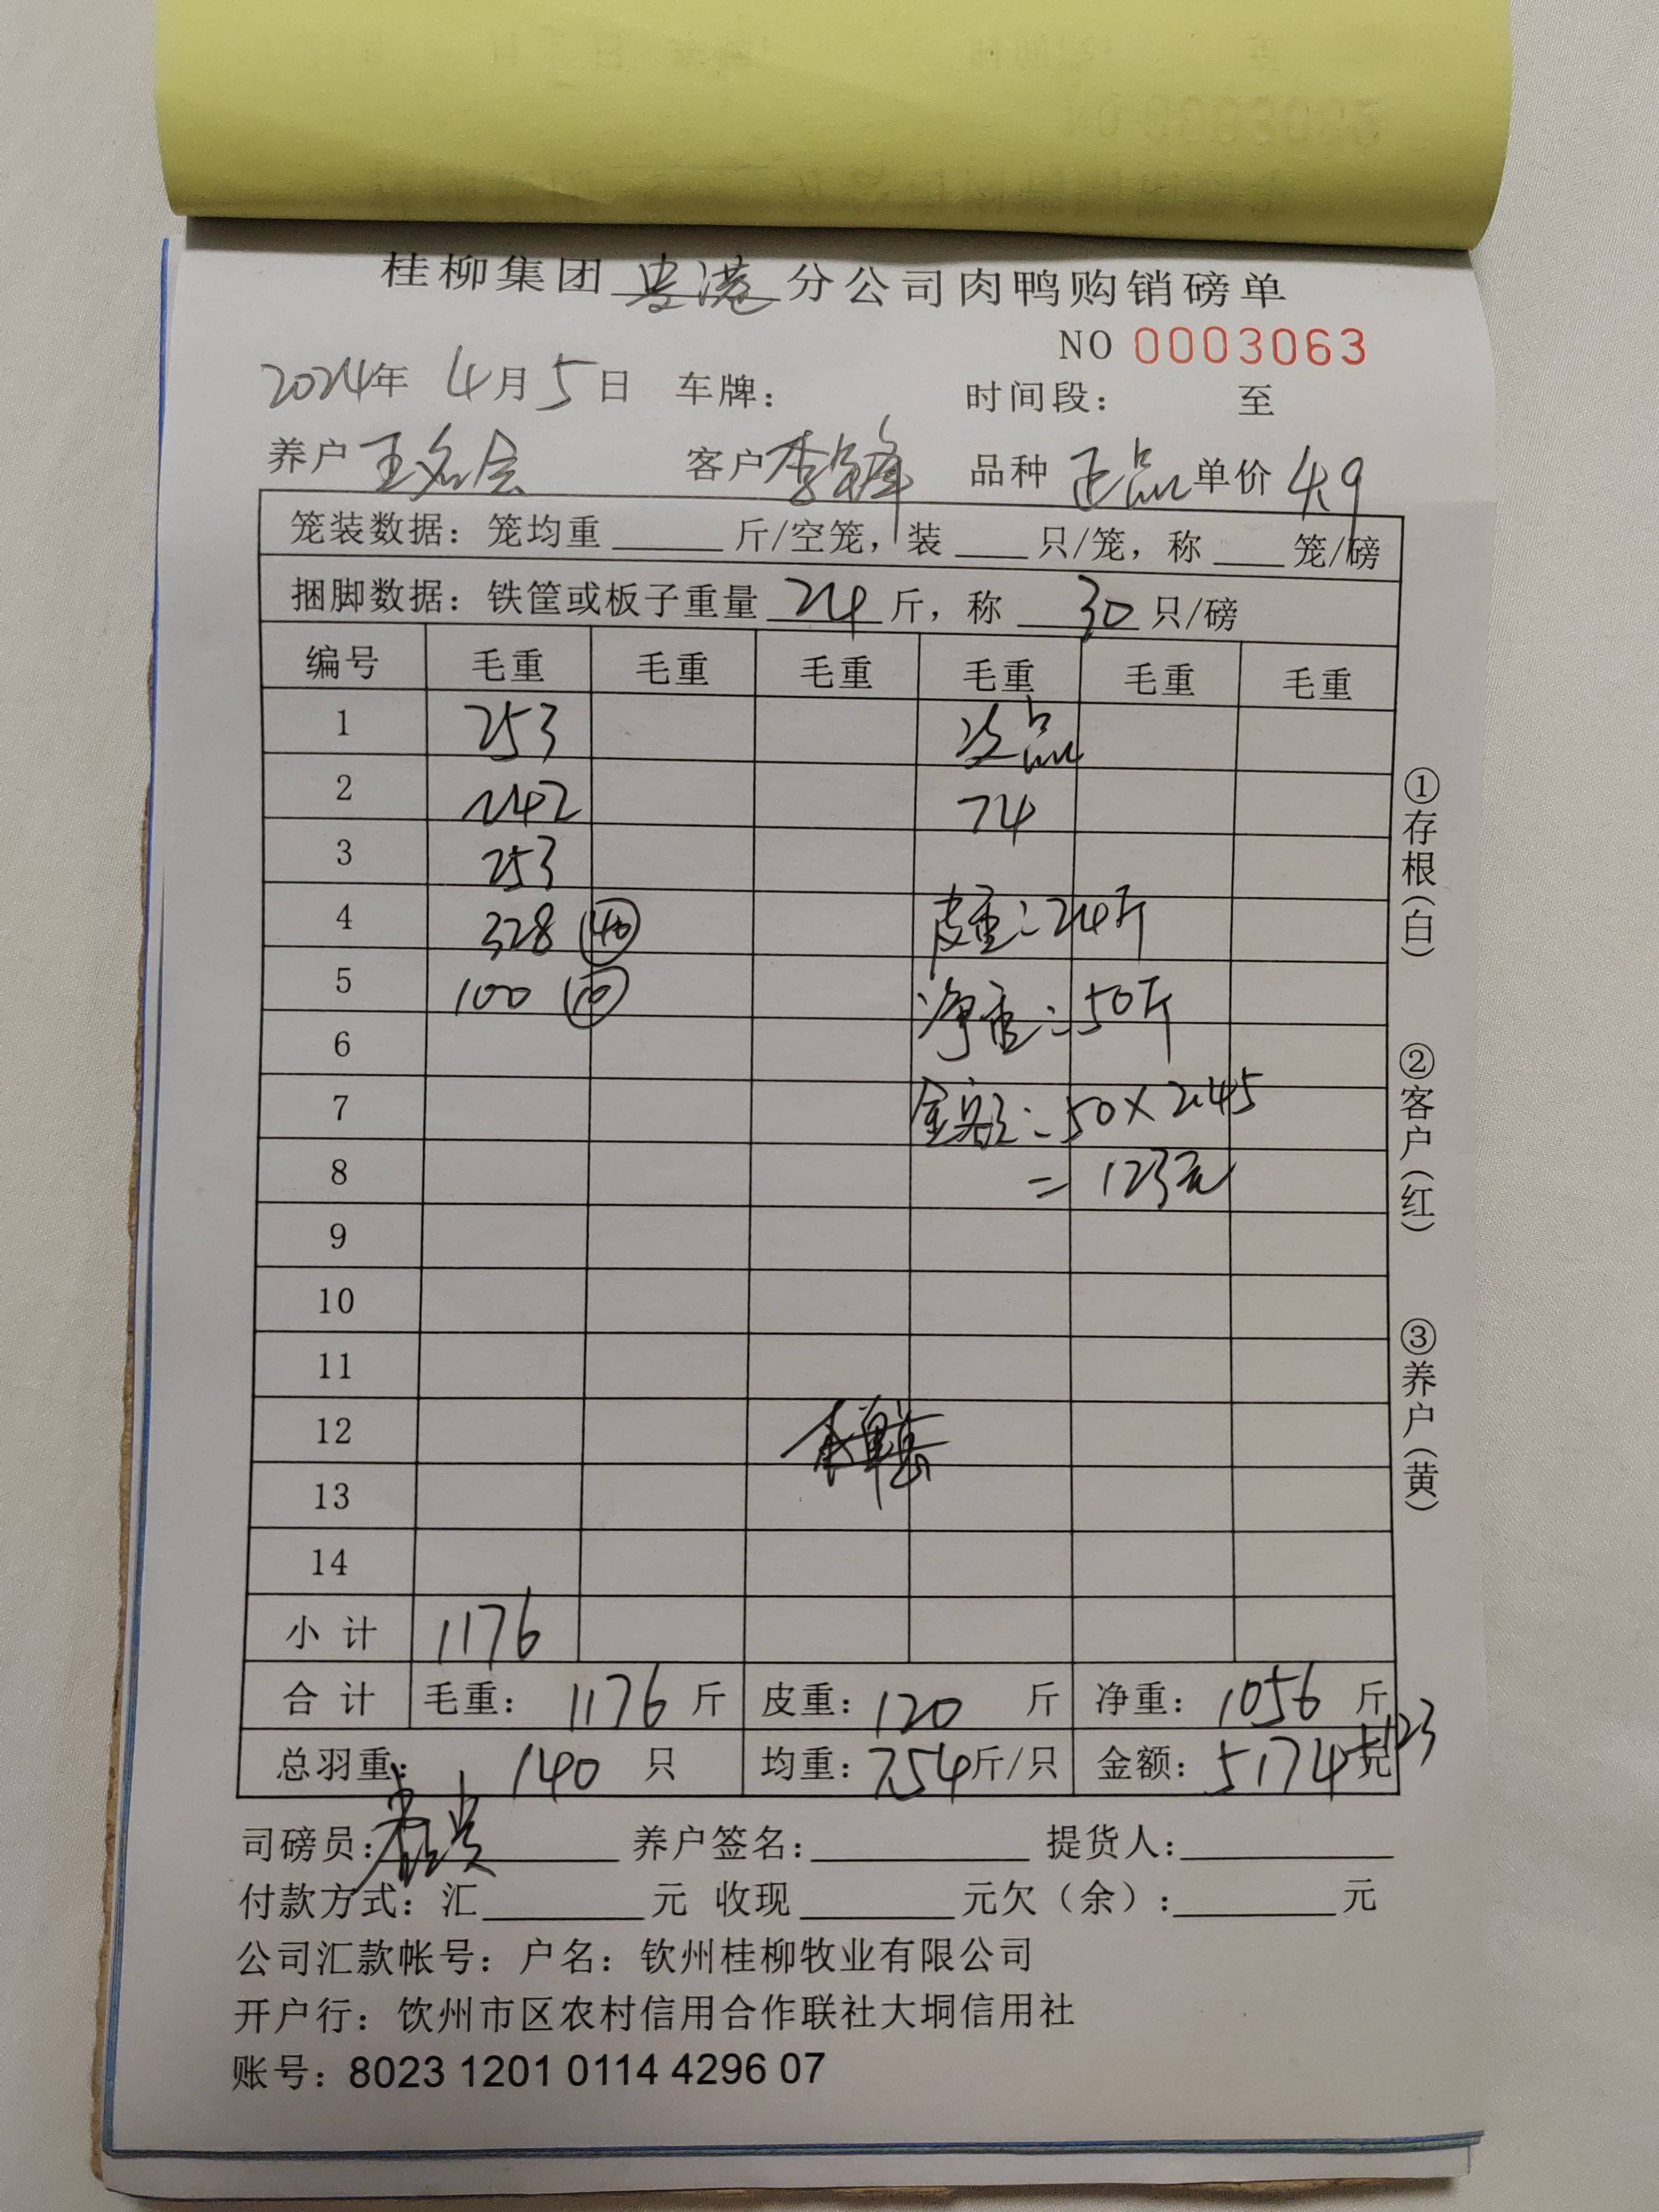 桂柳集团贵港分公司肉鸭购销磅单
NO 0003063
2024年 4月5日 车牌： 时间段： 至
养户 王名会 客户 李锋 品种 正品 单价 4.9
笼装数据：笼均重 斤/空笼，装 只/笼，称 笼/磅
捆脚数据：铁筐或板子重量 24 斤，称 30 只/磅
编号 毛重 毛重 毛重 毛重 毛重 毛重
1 253 次品
2 242 74
3 253
4 328 (40) 皮重：24斤
5 100 (10) 净重：50斤
6
7 金额：50×2.45
8 =123元
9
10
11
12
13
14
小计 1176
合计 毛重：1176 斤 皮重：120 斤 净重：1056 斤
总羽重：140 只 均重：7.54斤/只 金额：5174元+123
司磅员： 养户签名： 提货人：
付款方式：汇 元 收现 元欠（余）： 元
公司汇款帐号：户名：钦州桂柳牧业有限公司
开户行：饮州市区农村信用合作联社大垌信用社
账号：8023 1201 0114 4296 07
①存根（白）
②客户（红）
③养户（黄）